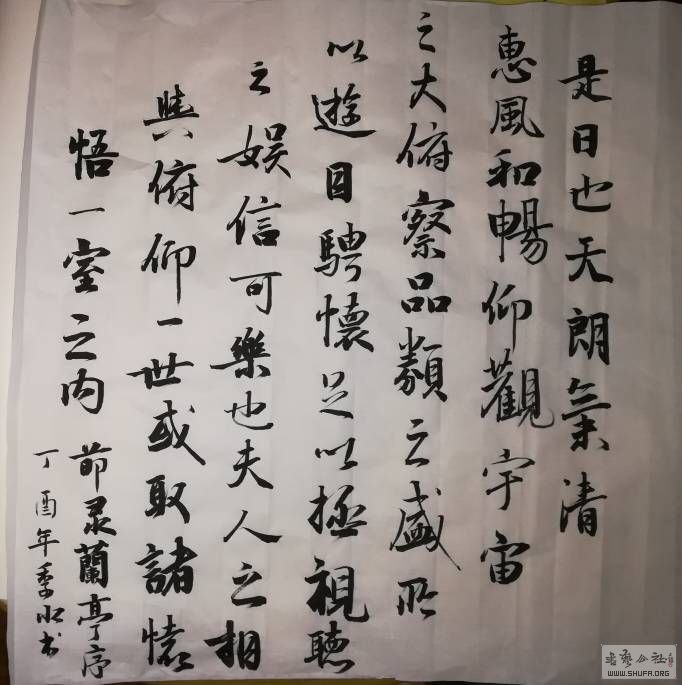 是日也天朗氣清
惠風和暢仰觀宇宙
之大俯察品類之盛所
以遊目騁懷足以極視聽
之娛信可樂也夫人之相
與俯仰一世或取諸懷
悟一室之內
節录蘭亭序
丁酉年书
书艺公社
WWW.SHUFA.ORG